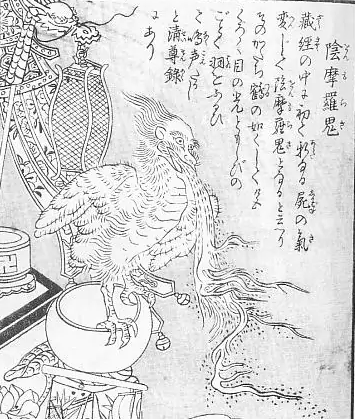 陰摩羅鬼
藏經の中に初て新なる屍の氣
変じて陰摩羅鬼となると云へり
そのかたち鶴の如くして色
くろく目の光ともしびの
ごとく羽をふるひ
て鳴声たかし
と清尊録
にあり